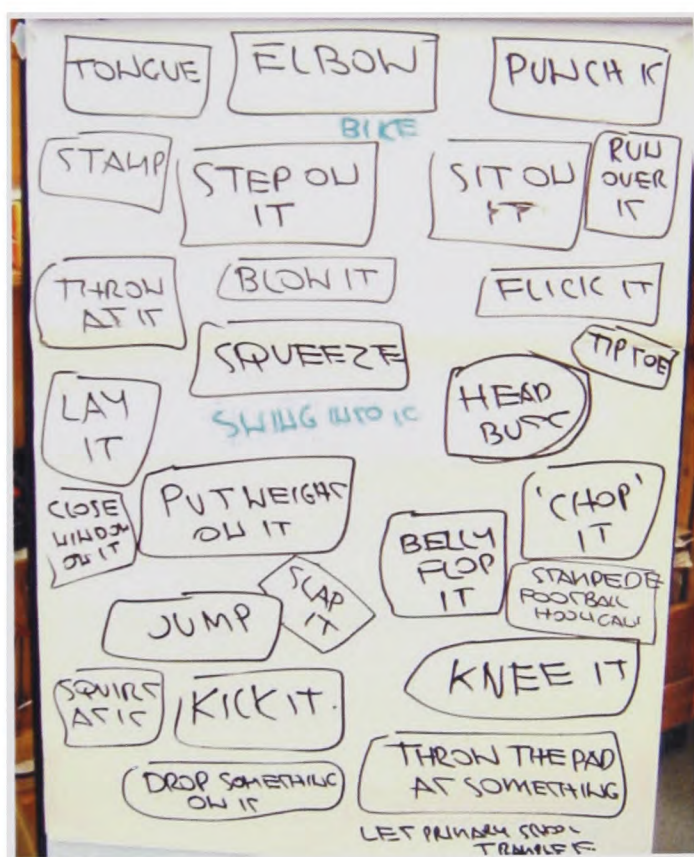 TONGUE
ELBOW
PUNCH IT
BIKE
STAMP
STEP ON
IT
SIT ON
IT
RUN
OVER
IT
THROW
AT IT
BLOW IT
FLICK IT
SQUEEZE
TIP TOE
LAY
IT
SWING INTO IT
HEAD
BUTT
CLOSE
WINDOW
ON IT
PUT WEIGHT
ON IT
BELLY
FLOP
IT
'CHOP'
IT
STAMPEDE
FOOTBALL
HOOLIGAN
SLAP
IT
JUMP
KNEE IT
SQUIRT
AT IT
KICK IT.
DROP SOMETHING
ON IT
THROW THE PAD
AT SOMETHING
LET PRIMARY SCHOOL
TRAMPLE